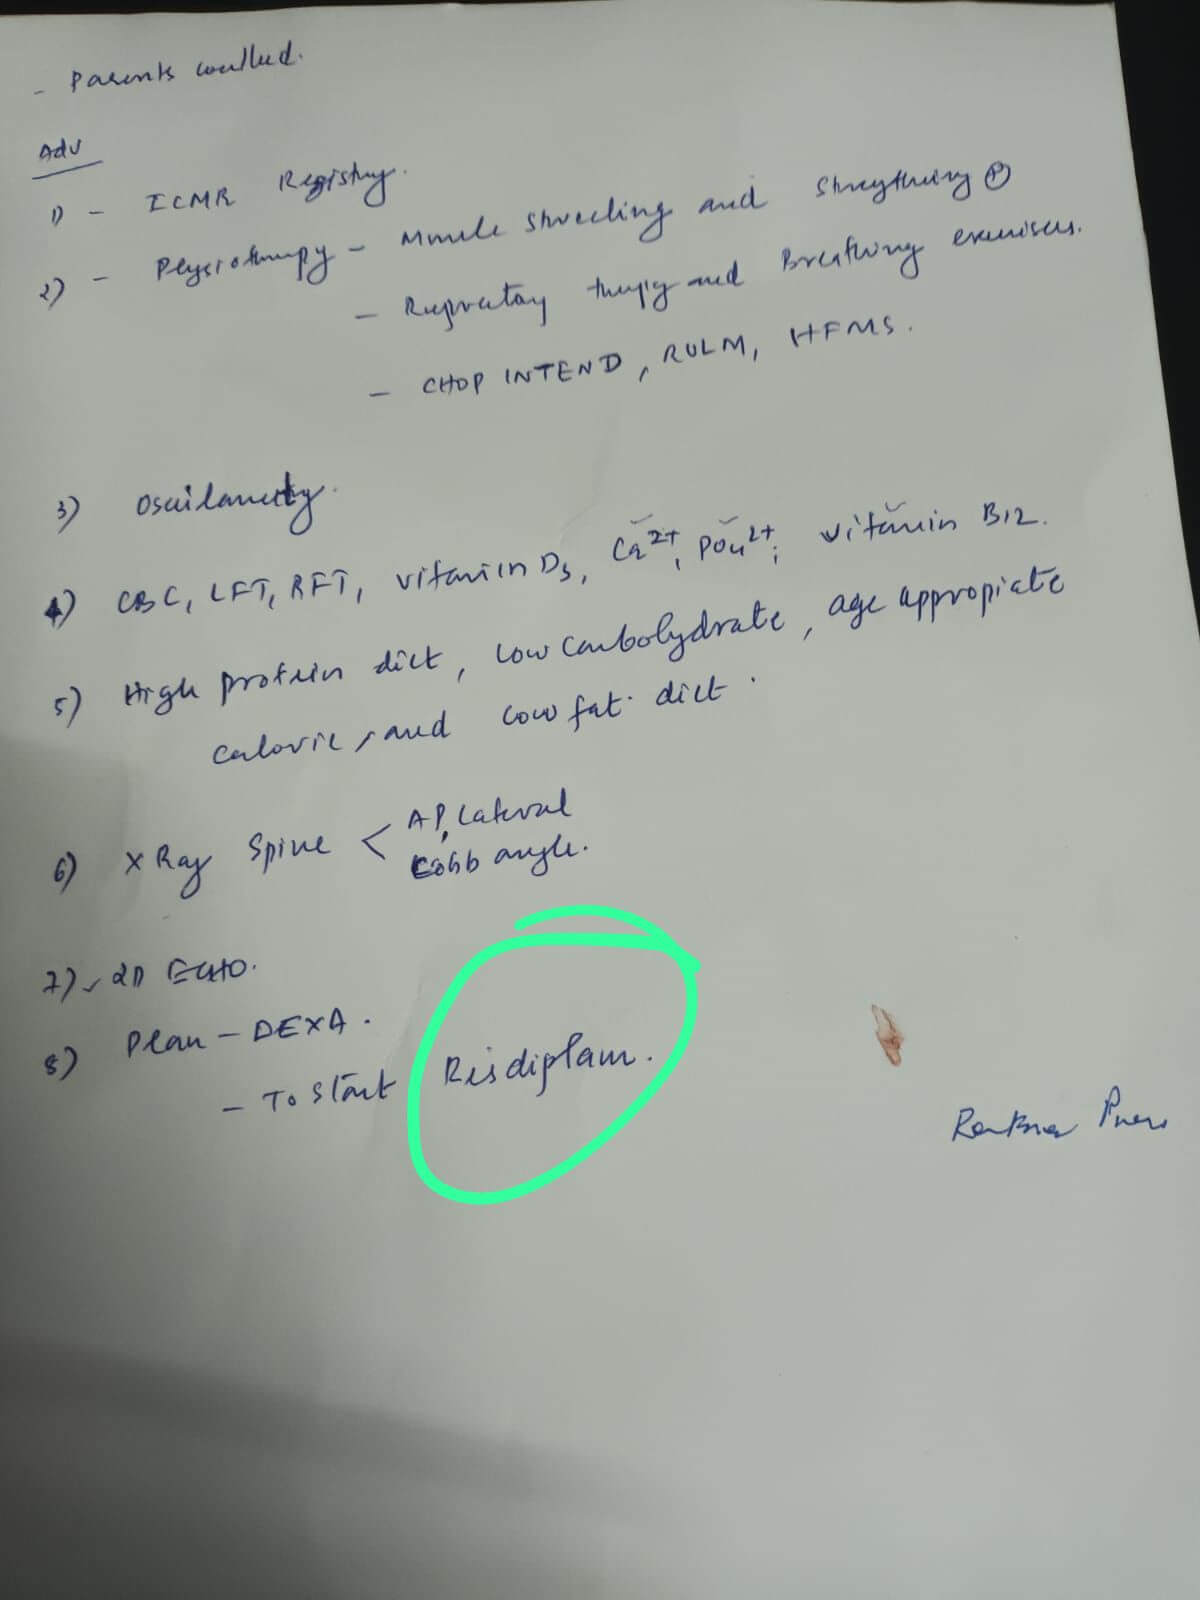 - Parents counselled.
Adv
1) - ICMR Registry.
2) - Physiotherapy - Muscle stretching and strengthening Ⓟ
- Respiratory therapy and Breathing exercises.
- CHOP INTEND, RULM, HFMS.
3) Oscillometry.
4) CBC, LFT, RFT, vitamin D3, Ca2+, PO42+, vitamin B12.
5) High protein diet, low carbohydrate, age appropiate
calorie, and low fat diet.
6) X Ray Spine < AP, Lateral
Cobb angle.
7) 2D ECHO.
8) Plan - DEXA.
- To start Risdiplam.